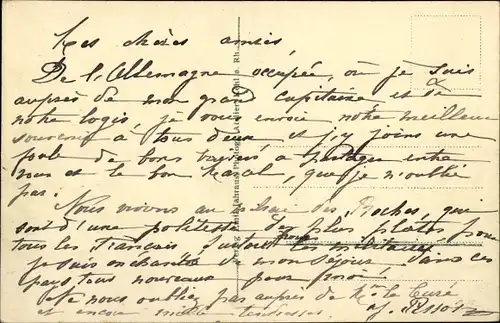 Mes chères amies,
De l'Allemagne occupée, où je suis
auprès de mon grand capitaine et de
notre logis je vous envoie notre meilleur
souvenir à tous deux et j'y joins une
foule de bons baisers à partager entre
vous et le bon, que je n'oublie
pas.
Nous vivons au milieu des Boches, qui
sont d'une politesse des plus plates pour
tous les Français surtout les militaires
je suis enchantée de mon séjour dans ces
pays tous nouveaux pour moi!
Ne nous oubliez pas auprès de Mr le Curé
et encore mille tendresses.